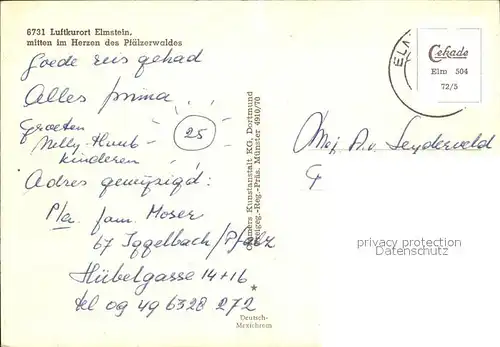 6731 Luftkurort Elmstein,
mitten im Herzen des Pfälzerwaldes
Goede reis gehad
Alles prima
Groeten
Nelly-Huub-
kinderen
25
Adres gewijzigd:
P/a. fam. Moser
67 Iggelbach/Pfalz
Hübelgasse 14+16
tel 09 49 6328 272
Cramers Kunstanstalt KG, Dortmund
Anzeigeg.-Reg.-Präs. Münster 4910/70
*
Deutsch-
Mexichrom
ELM
Cekade
Elm 504
72/5
Mej A.v. Leyderveld
privacy protection
Datenschutz